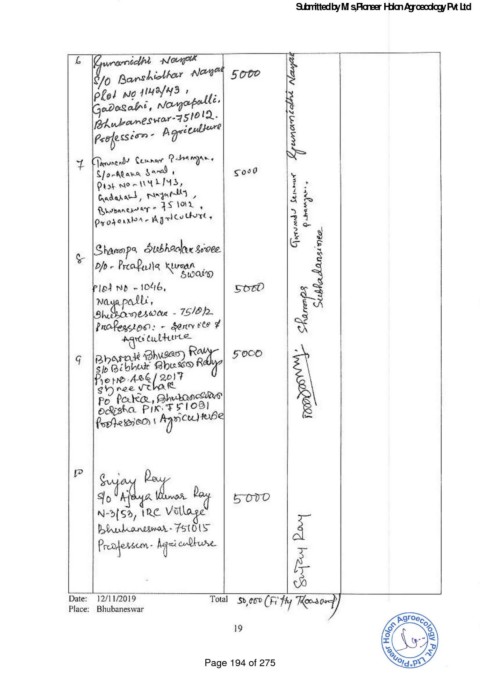 Submitted by M/s, Pioneer Holon Agroecology Pvt Ltd
6
Gunanidhi Nayak
S/O Banshidhar Nayak
5000
Plot No 1142/43,
Gadasahi, Nayapalli,
Bhubaneswar-751012.
Profession- Agriculture
Gunanidhi Nayak
7
5000
Plot No - 1142/43,
Gadasahi, Nayapalli,
Bhubaneswar - 751012,
Profession - Agriculture.
8
Sharmopa Subhadarsinee
D/o - Prafulla Kumar
Swain
Plot No - 1046,
5000
Nayapalli,
Bhubaneswar - 751012
Profession: - Service &
Agriculture
Subhadarsinee
9
Bharati Bhusan Ray
5000
S/o Bibhuti Bhusan Ray
2017
Shree vihar
Po Patia, Bhubaneswar
Odisha PIN. 751031
Profession: Agriculture
10
Sujay Ray
S/o Ajaya Kumar Ray
5000
N-3/53, IRC Village
Bhubaneswar-751015
Profession- Agriculture
Sujay Ray
Date: 12/11/2019
Total 50,000 (Fifty Thousand)
Place: Bhubaneswar
19
Pioneer Holon Agroecology Pvt. Ltd.
Page 194 of 275